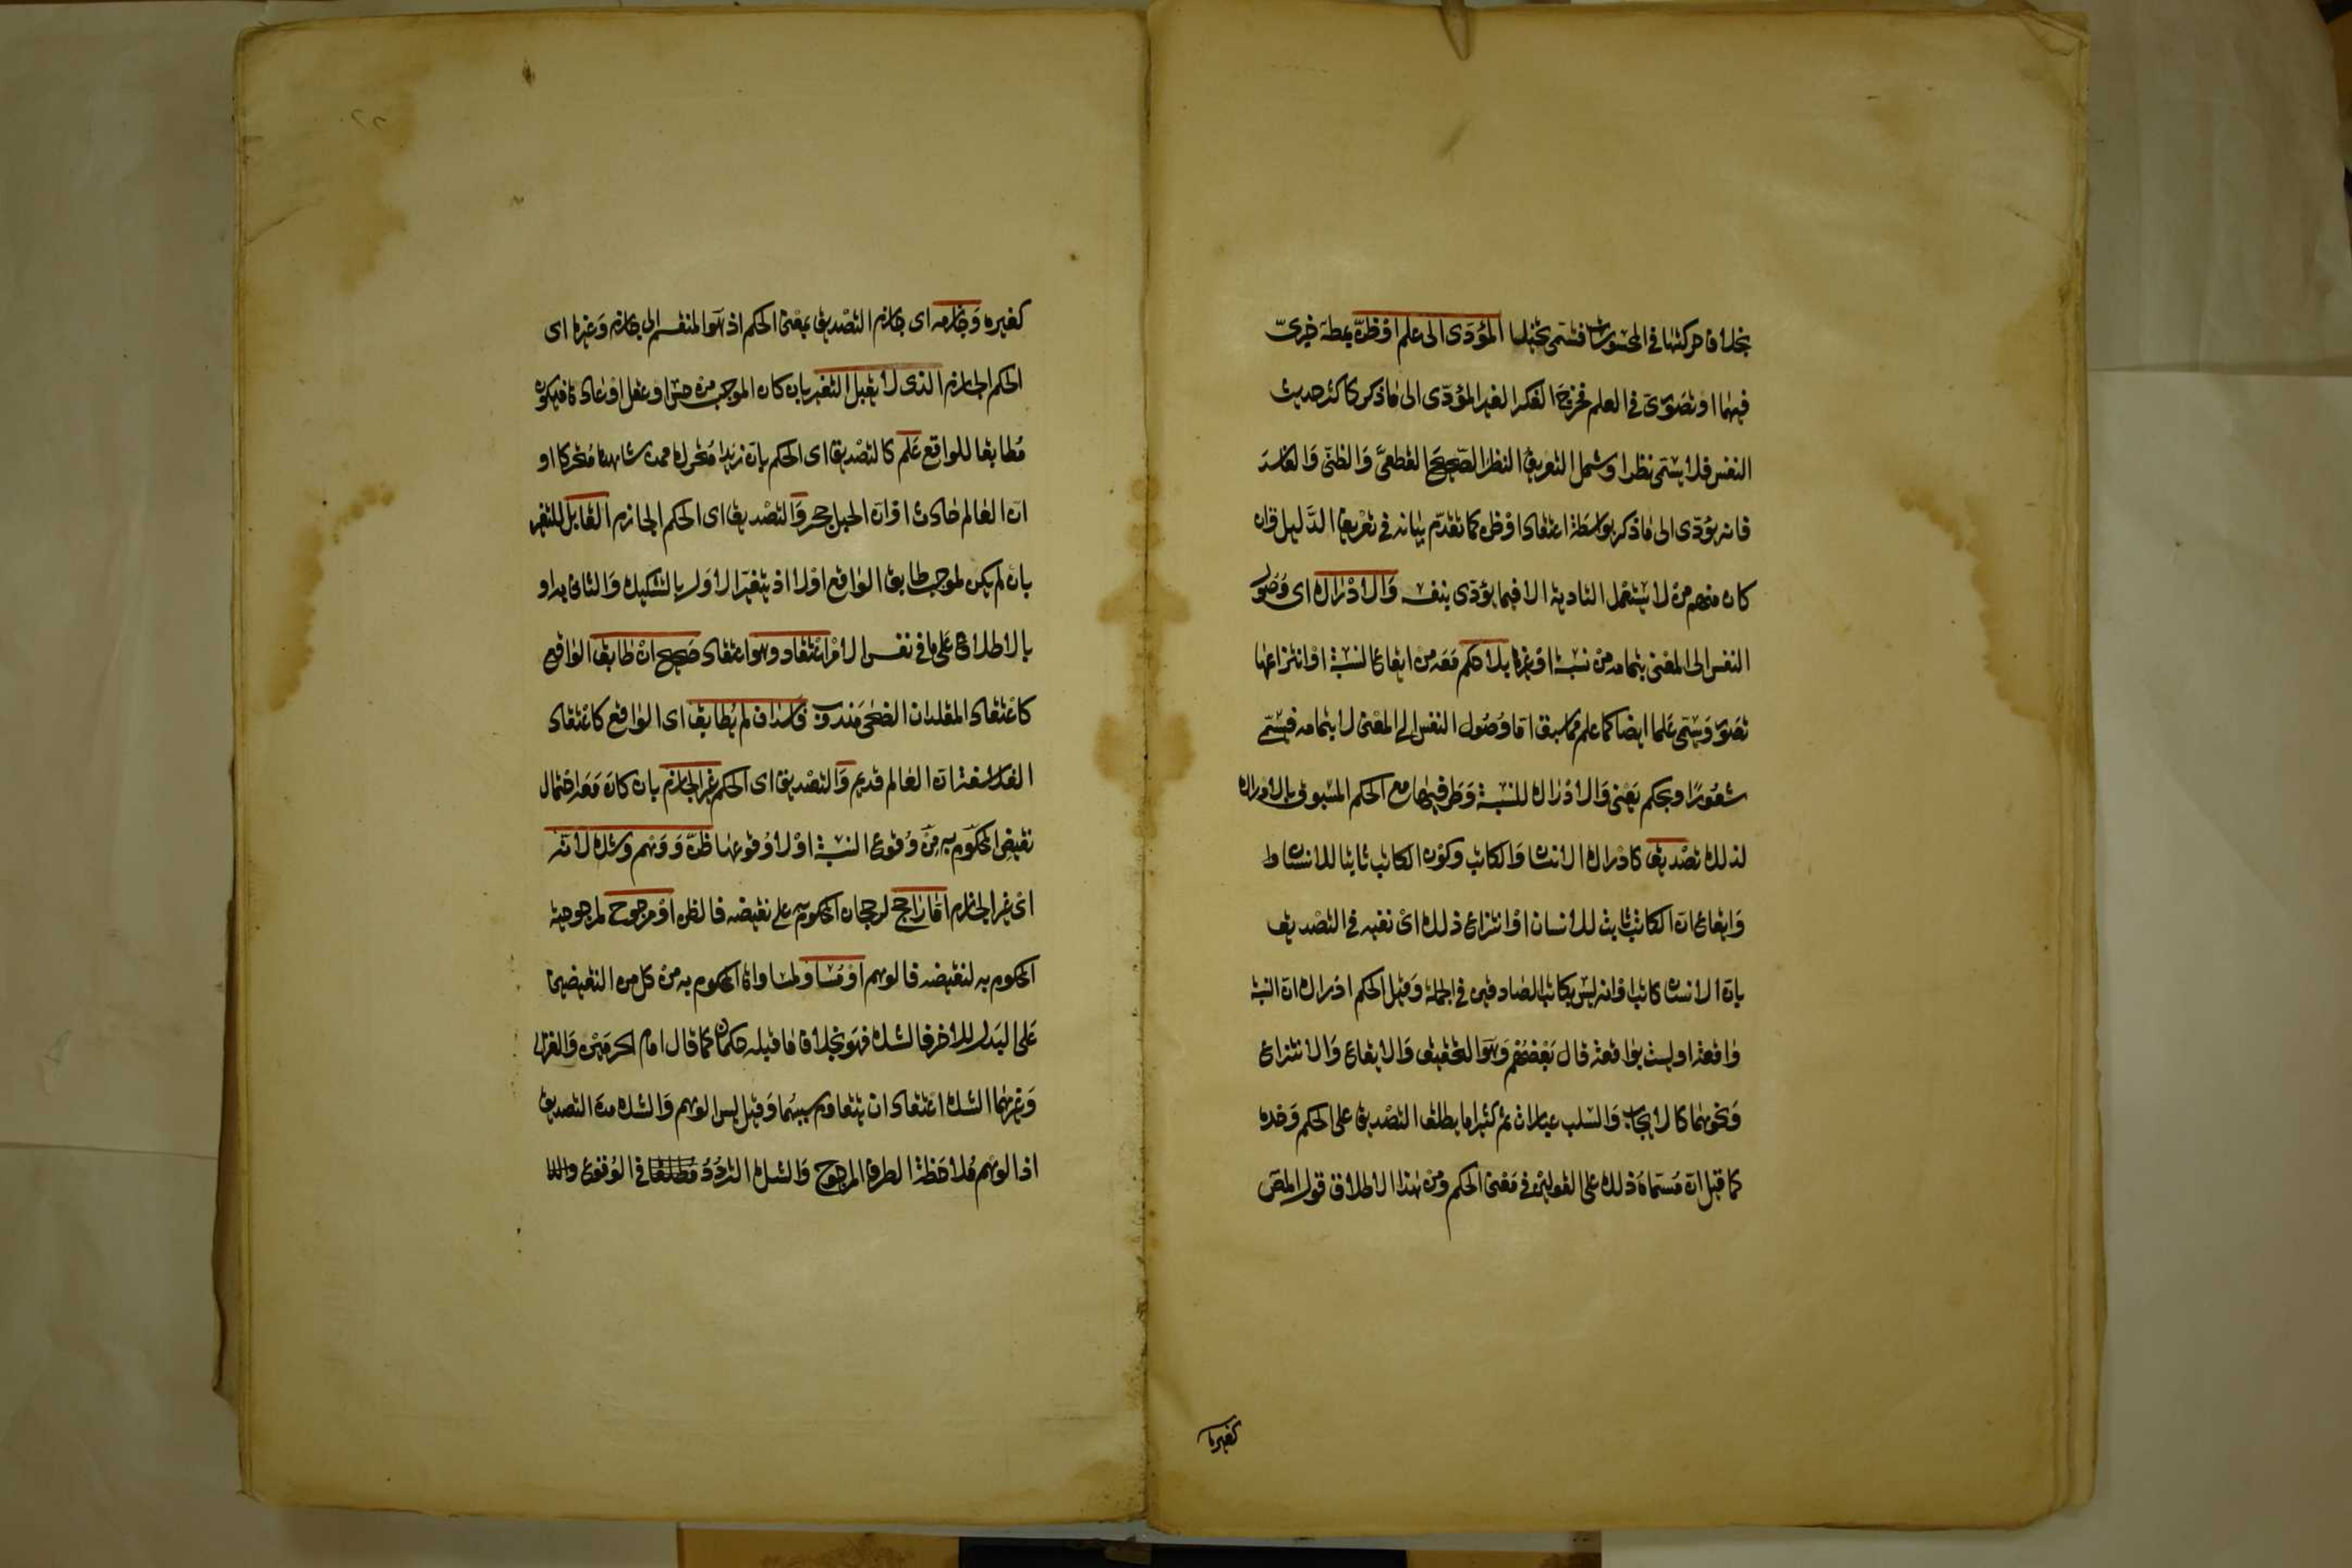 بخلاف حركتها في المحسوسات فتسمى تخييلا المؤدى الى علم او ظن بمطلوب خبرى
فيهما او تصورى في العلم فخرج الفكر الغير المؤدى الى ما ذكر كاكثر حديث
النفس فلا يسمى نظرا وشمل التعريف النظر الصحيح القطعى والظنى والفاسد
فانه يؤدى الى ما ذكر بواسطة اعتقاد او ظن كما تقدم بيانه في تعريف الدليل فان
كان منهم من لا يستعمل التادية الا فيما يؤدى بنفسه والادراك اى وصول
النفس الى المعنى بتمامه من نسبة او غيرها بلا حكم معه من ايقاع النسبة او انتزاعها
تصور ويسمى علما ايضا كما علم مما سبق اما وصول النفس الى المعنى لا بتمامه فيسمى
شعورا وبحكم يعنى والادراك للنسبة وطرفيها مع الحكم المسبوق بالادراك
لذلك تصديق كادراك الانسان والكاتب وكون الكاتب ثابتا للانسان
وايقاع ان الكاتب ثابت للانسان او انتزاع ذلك اى نفيه في التصديق
بان الانسان كاتب او انه ليس بكاتب الصادقين في الجملة وقيل الحكم ادراك ان النسبة
واقعة او ليست بواقعة قال بعضهم وهو التحقيق والايقاع والانتزاع
ونحوهما كالايجاب والسلب عبارات ثم كثيرا ما يطلق التصديق على الحكم وحده
كما قيل ان مسماه ذلك على القولين في معنى الحكم ومن هذا الاطلاق قول المص
كغيره
كغيره وجازمه اى جازم التصديق بمعنى الحكم اذ هو المنقسم الى جازم وغيره اى
الحكم الجازم الذى لا يقبل التغير بان كان الموجب من حس او عقل او عادة فيكون
مطابقا للواقع علم كالتصديق اى الحكم بان زيدا متحرك ممن شاهده متحركا او
ان العالم حادث او ان الجبل حجر والتصديق اى الحكم الجازم القابل للتغير
بان لم يكن لموجب طابق الواقع اولا اذ يتغير الاول بالتشكيك والثانى به او
بالاطلاع على ما في نفس الامر اعتقاد وهو اعتقاد صحيح ان طابق الواقع
كاعتقاد المقلد ان الضحى مندوب فاسد ان لم يطابق اى الواقع كاعتقاد
الفلاسفة ان العالم قديم والتصديق اى الحكم غير الجازم بان كان معه احتمال
نقيض المحكوم به من وقوع النسبة او لا وقوعها ظن ووهم وشك لانه
اى غير الجازم اما راجح لرجحان المحكوم به على نقيضه فالظن او مرجوح لمرجوحية
المحكوم به لنقيضه فالوهم او مساو لمساواة المحكوم به من كل من النقيضين
على البدل للاخر فالشك فهو بخلاف ما قبله حكمان كما قال امام الحرمين والغزالى
وغيرهما الشك اعتقاد ان يتقاوم سببهما وقيل ليس الوهم والشك من التصديق
اذ الوهم ملاحظة الطرف المرجوح والشك التردد في الوقوع